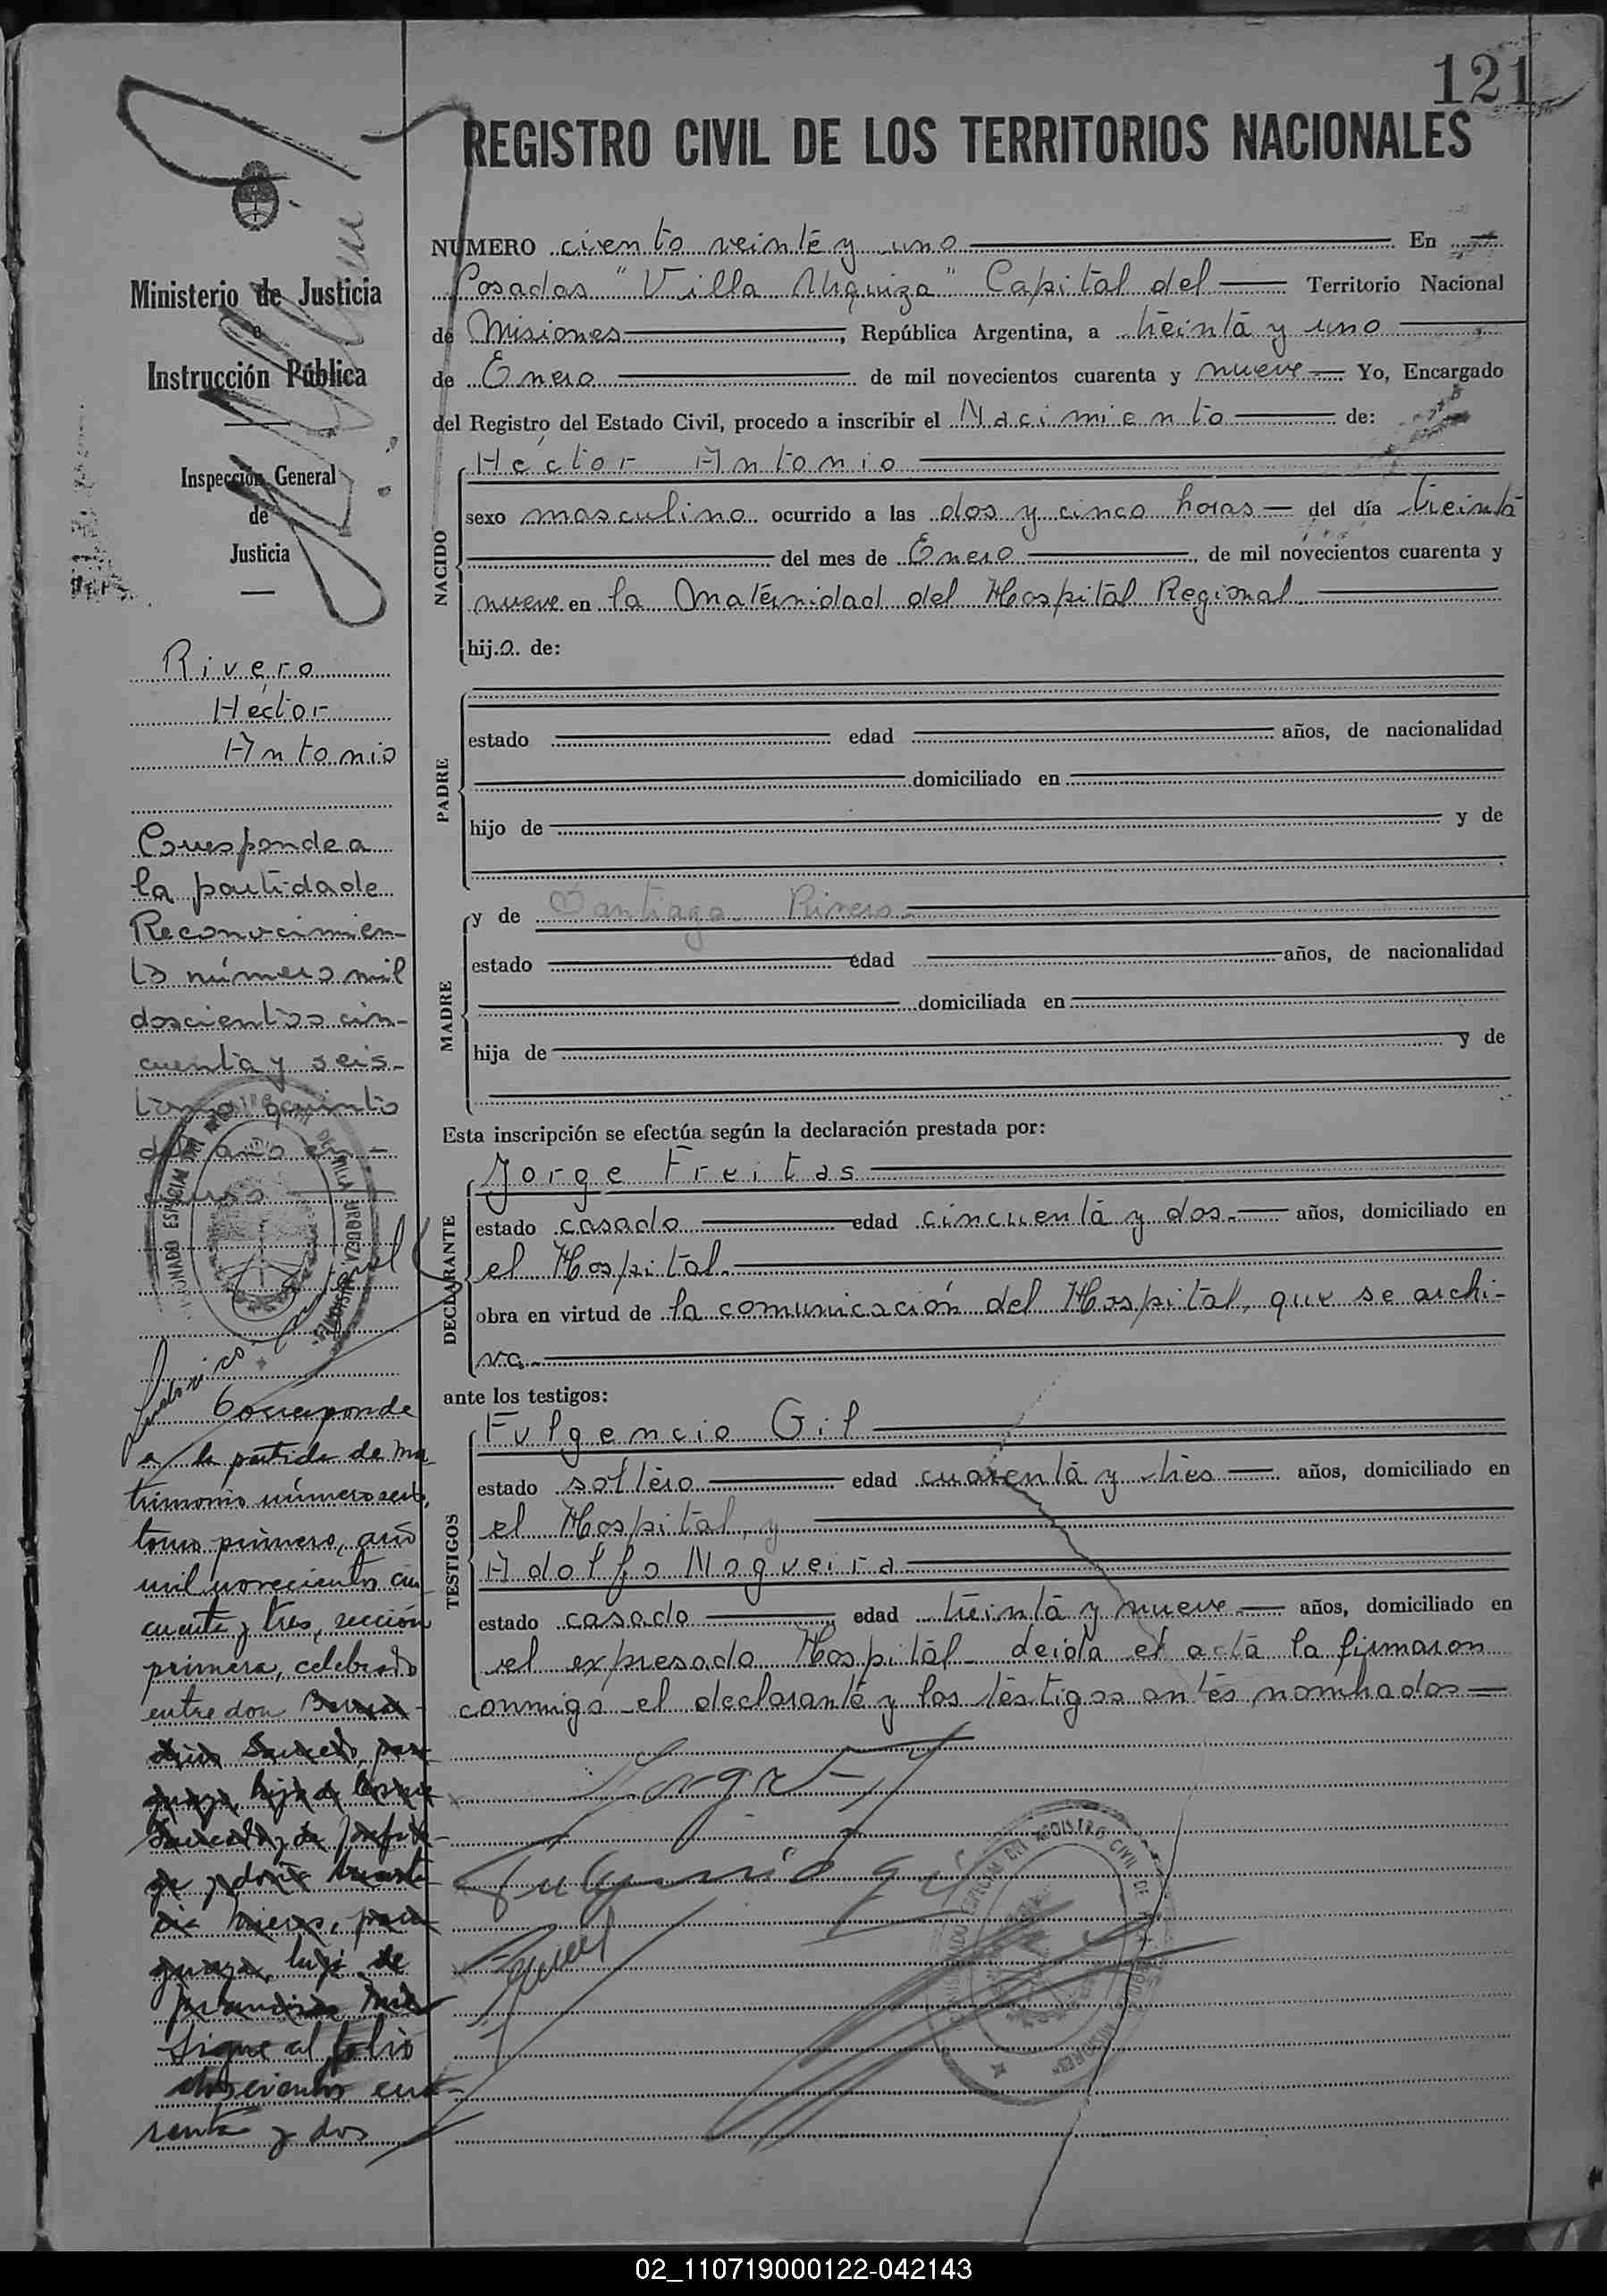 121
REGISTRO CIVIL DE LOS TERRITORIOS NACIONALES
NUMERO ciento veinte y uno En
Posadas "Villa Urquiza" Capital del Territorio Nacional
de Misiones, República Argentina, a treinta y uno
de Enero de mil novecientos cuarenta y nueve Yo, Encargado
del Registro del Estado Civil, procedo a inscribir el Nacimiento de:
NACIDO
Héctor Antonio
sexo masculino ocurrido a las dos y cinco horas del día treinta
del mes de Enero de mil novecientos cuarenta y
nueve en la Maternidad del Hospital Regional
hijo de:
PADRE
estado edad años, de nacionalidad
domiciliado en
hijo de y de
MADRE
y de Santiago Rivero
estado edad años, de nacionalidad
domiciliada en
hija de y de
Esta inscripción se efectúa según la declaración prestada por:
DECLARANTE
Jorge Freitas
estado casado edad cincuenta y dos.- años, domiciliado en
el Hospital.
obra en virtud de la comunicación del Hospital, que se archi-
va.
ante los testigos:
TESTIGOS
Fulgencio Gil
estado soltero edad cuarenta y tres años, domiciliado en
el Hospital, y
Adolfo Nogueira
estado casado edad treinta y nueve.- años, domiciliado en
el expresado Hospital- leida el acta la firmaron
conmigo el declarante y los testigos antes nombrados
Ministerio de Justicia
e
Instrucción Pública
Inspección General
de
Justicia
Rivero
Héctor
Antonio
Corresponde a
la partida de
Reconocimien-
to número mil
doscientos cin-
cuenta y seis-
tomo quinto
del año en
curso
Corresponde
a la partida de ma-
trimonio número seis,
tomo primero, año
mil novecientos cin-
cuenta y tres, sección
primera, celebrado
entre don
Sigue al folio
doscientos cua-
renta y dos
02_110719000122-042143